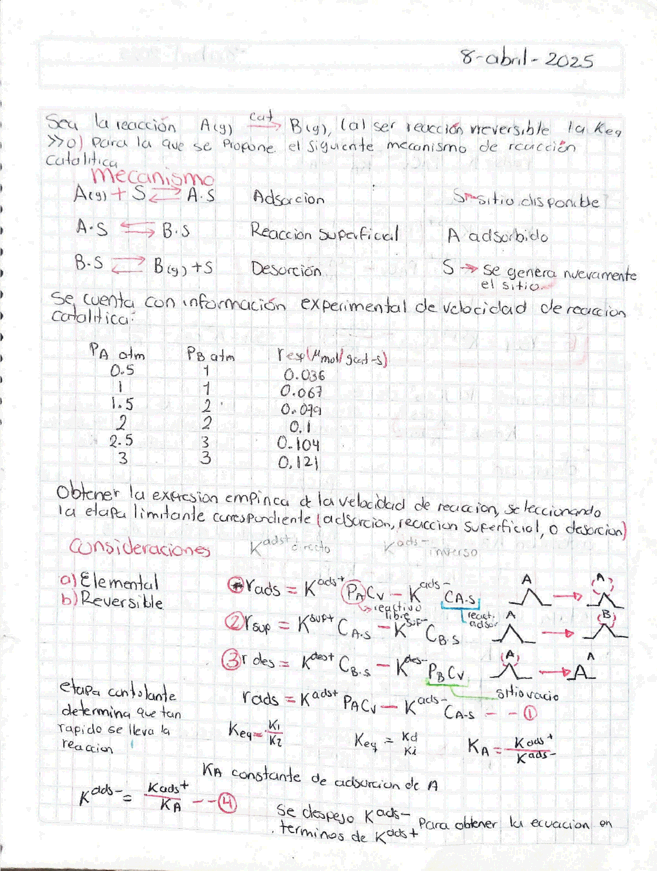 8-abril-2025
Sea la reacción A(g) cat→ B(g), (al ser reacción irreversible la Keq
>>0) para la que se propone el siguiente mecanismo de reacción
catalitica
mecanismo
A(g) + S ⇄ A·S Adsorcion S→sitio disponible
A·S ⇄ B·S Reacción Superficial A adsorbido
B·S ⇄ B(g)+S Desorción S → se genera nuevamente
el sitio
Se cuenta con información experimental de velocidad de reaccion
catalitica:
PA atm PB atm r exp(μmol/gcat-s)
0.5 1 0.036
1 1 0.067
1.5 2 0.079
2 2 0.1
2.5 3 0.104
3 3 0.121
Obtener la expresion empirica d la velocidad de reaccion, seleccionando
la etapa limitante correspondiente (adsorcion, reaccion superficial, o desorcion)
Consideraciones K^ads+ directo K^ads- inverso
a) Elemental
b) Reversible
① rads = K^ads+ PA Cv - K^ads- CA·S A → (A)
reactivo libre
react. adsor
② rsup = K^sup+ CA·S - K^sup- CB·S A → (B)
③ r des = K^des+ CB·S - K^des- PB Cv (A) → A
sitio vacio
etapa controlante
determina que tan
rapido se lleva la
reaccion
rads = K^ads+ PACv - K^ads- CA·S -- ①
Keq = K1/K2 Keq = Kd/Ki KA = K^ads+/K^ads-
KA constante de adsorcion de A
K^ads- = K^ads+/KA -- ④
Se despejo K^ads- para obtener la ecuacion en
terminos de K^ads+